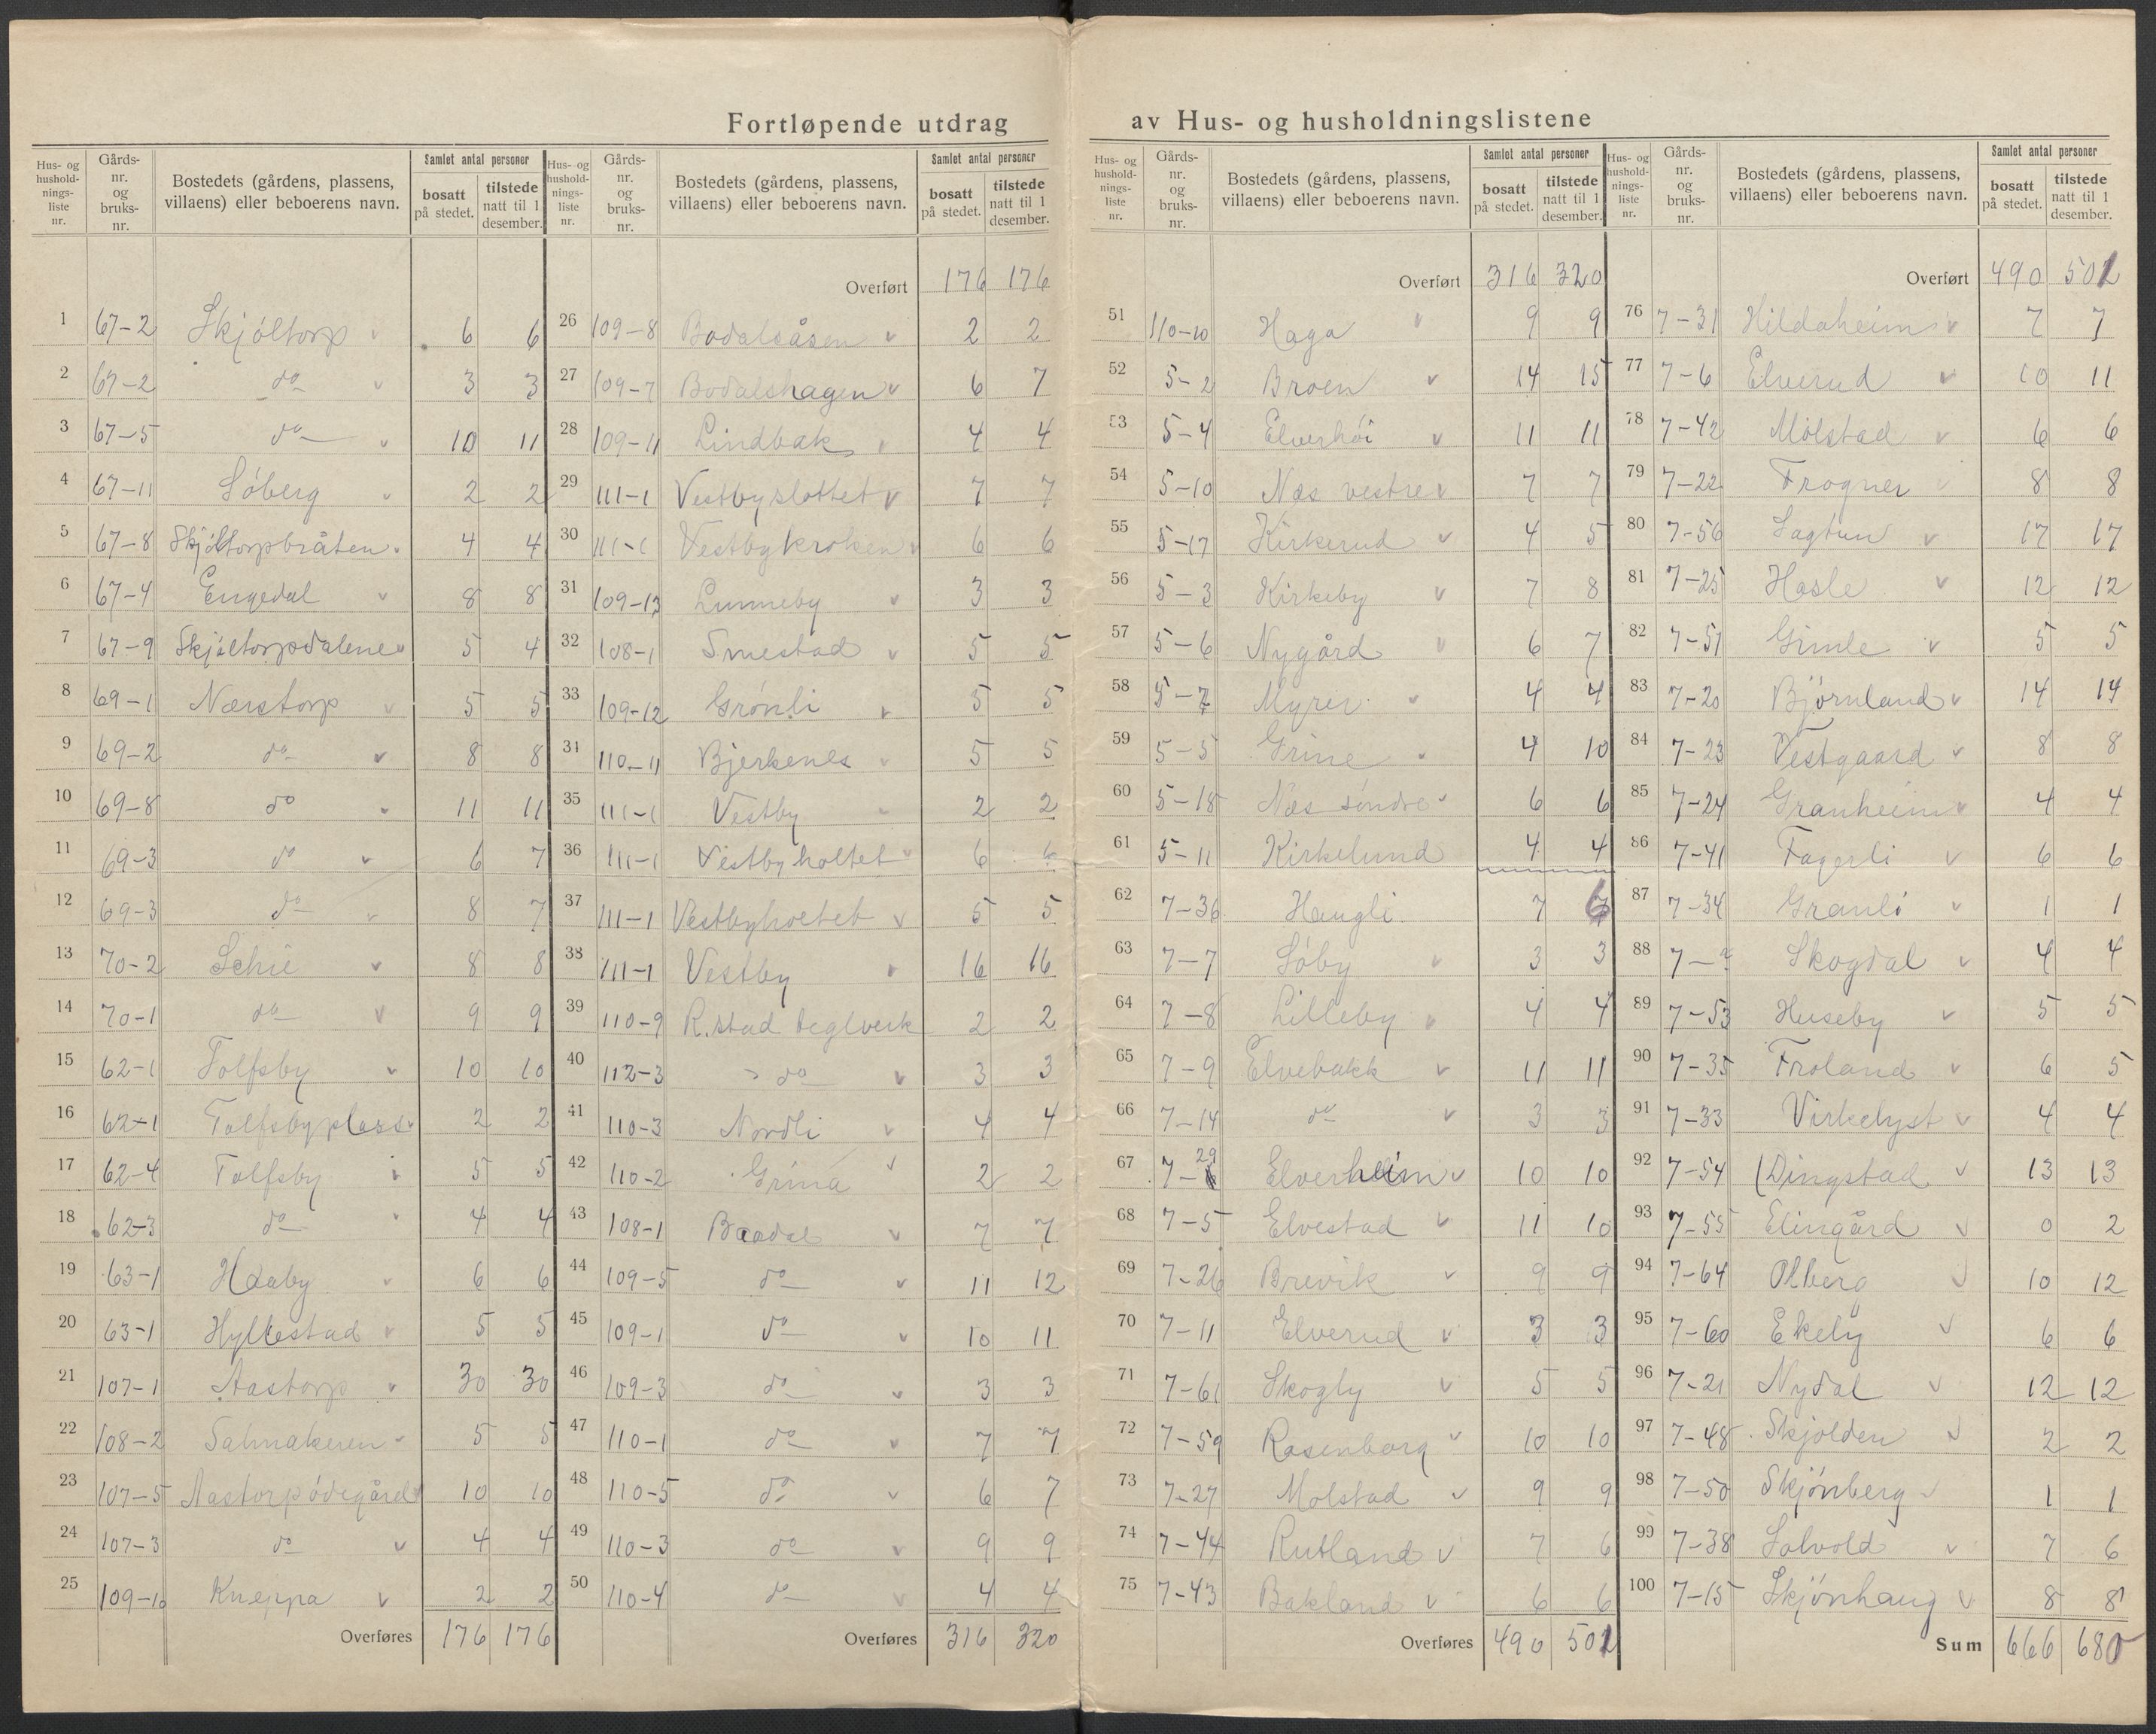 Fortløpende utdrag av Hus- og husholdningslistene
Hus- og hushold- nings- liste nr. | Gårds- nr. og bruks- nr. | Bostedets (gårdens, plassens, villaens) eller beboerens navn. | Samlet antal personer | bosatt på stedet. | tilstede natt til 1 desember.
1 67-2 Skjöltorp v 6 6
2 67-2 do v 3 3
3 67-5 do v 10 11
4 67-11 Söberg v 2 2
5 67-8 Skjöltorpbråten v 4 4
6 67-4 Engedal v 8 8
7 67-9 Skjöltorpsdalene v 5 4
8 69-1 Nærstorp v 5 5
9 69-2 do v 8 8
10 69-8 do v 11 11
11 69-3 do v 6 7
12 69-3 do v 8 7
13 70-2 Schie v 8 8
14 70-1 do v 9 9
15 62-1 Tolfsby v 10 10
16 62-1 Tolfsbyplass v 2 2
17 62-4 Tolfsby v 5 5
18 62-3 do v 4 4
19 63-1 Haaby v 6 6
20 63-1 Hyllestad v 5 5
21 107-1 Aastorp v 30 30
22 108-2 Salmakeren v 5 5
23 107-5 Aastorpödegård v 10 10
24 107-3 do v 4 4
25 109-10 Kneppa v 2 2
Overføres 176 176
Hus- og hushold- nings- liste nr. | Gårds- nr. og bruks- nr. | Bostedets (gårdens, plassens, villaens) eller beboerens navn. | Samlet antal personer | bosatt på stedet. | tilstede natt til 1 desember.
Overført 176 176
26 109-8 Bodalsåsen v 2 2
27 109-7 Bodalshagen v 6 7
28 109-11 Lindbak v 4 4
29 111-1 Vestbyslottet v 7 7
30 111-1 Vestbykroken v 6 6
31 109-13 Lunneby v 3 3
32 108-1 Smestad v 5 5
33 109-12 Grönli v 5 5
34 110-11 Bjerkenes v 5 5
35 111-1 Vestby v 2 2
36 111-1 Vestbyholtet v 6 6
37 111-1 Vestbyholtet v 5 5
38 111-1 Vestby v 16 16
39 110-9 R.stad teglverk 2 2
40 112-3 do v 3 3
41 110-3 Nordli v 4 4
42 110-2 Grina v 2 2
43 108-1 Baadal v 7 7
44 109-5 do v 11 12
45 109-1 do v 10 11
46 109-3 do v 3 3
47 110-1 do v 7 7
48 110-5 do v 6 7
49 110-3 do v 9 9
50 110-4 do v 4 4
Overføres 316 320
Hus- og hushold- nings- liste nr. | Gårds- nr. og bruks- nr. | Bostedets (gårdens, plassens, villaens) eller beboerens navn. | Samlet antal personer | bosatt på stedet. | tilstede natt til 1 desember.
Overført 316 320
51 110-10 Haga v 9 9
52 5-2 Broen v 14 15
53 5-4 Elverhöi v 11 11
54 5-10 Næs vestre v 7 7
55 5-17 Kirkerud v 4 5
56 5-3 Kirkeby v 7 8
57 5-6 Nygård v 6 7
58 5-7 Myrer v 4 4
59 5-5 Grine v 4 10
60 5-18 Næs söndre v 6 6
61 5-11 Kirkelund 4 4
62 7-36 Haugli 7 6
63 7-7 Söby v 3 3
64 7-8 Lilleby v 4 4
65 7-9 Elvebakk v 11 11
66 7-14 do v 3 3
67 7-29 Elverheim v 10 10
68 7-5 Elvestad v 11 10
69 7-26 Brevik v 9 9
70 7-11 Elverud v 3 3
71 7-61 Skogly v 5 5
72 7-59 Rosenborg v 10 10
73 7-27 Molstad v 9 9
74 7-44 Rutland v 7 6
75 7-43 Bakland v 6 6
Overføres 490 501
Hus- og hushold- nings- liste nr. | Gårds- nr. og bruks- nr. | Bostedets (gårdens, plassens, villaens) eller beboerens navn. | Samlet antal personer | bosatt på stedet. | tilstede natt til 1 desember.
Overført 490 501
76 7-31 Hildaheim v 7 7
77 7-6 Elverud v 10 11
78 7-42 Mölstad v 6 6
79 7-22 Frogner v 8 8
80 7-56 Lagtun v 17 17
81 7-25 Hasle v 12 12
82 7-51 Gimle v 5 5
83 7-20 Björnland v 14 14
84 7-23 Vestgaard v 8 8
85 7-24 Granheim v 4 4
86 7-41 Fagerli v 6 6
87 7-34 Granli v 1 1
88 7- Skogdal v 4 4
89 7-53 Huseby v 5 5
90 7-35 Froland v 6 5
91 7-33 Virkelyst v 4 4
92 7-54 Dingstad v 13 13
93 7-55 Elingård v 0 2
94 7-64 Olberg v 10 12
95 7-60 Ekely v 6 6
96 7-21 Nydal v 12 12
97 7-48 Skjolden v 2 2
98 7-50 Skjönberg v 1 1
99 7-38 Solvold v 7 6
100 7-15 Skjönhaug v 8 8
Sum 666 680